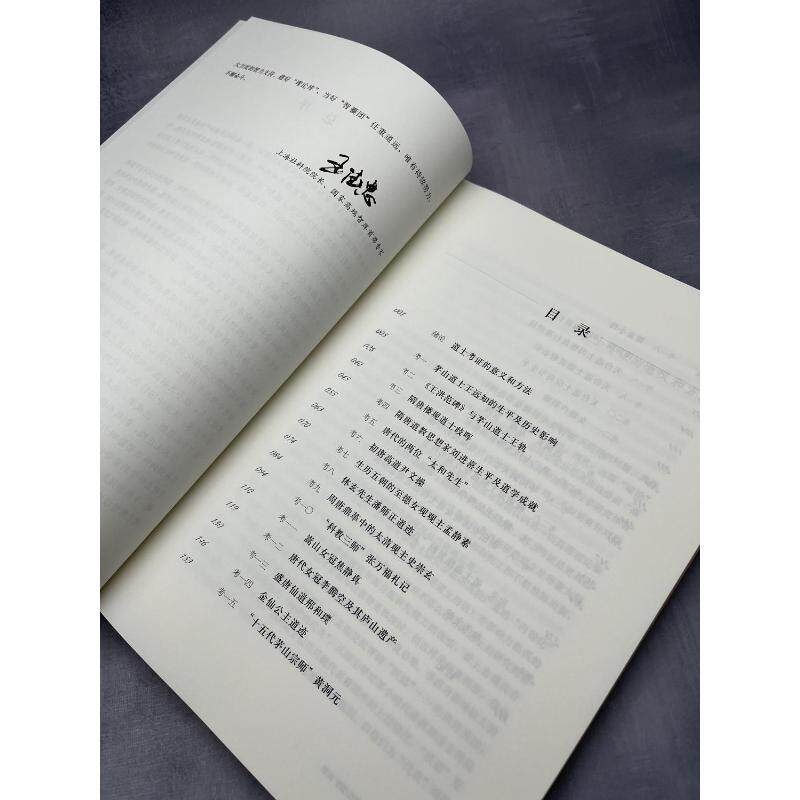 大力度的智力支持。建好“理论库”、当好“智囊团”任重道远，唯有持治努力，
不懈奋斗。
王德忠
上海社科院院长、国家高端智库首席专家
目 录
001 绪论 道士考证的意义和方法
025 考一 茅山道士王远知的生平及历史影响
考二 《王洪范碑》与茅山道士王轨
040 考三 隋唐楼观道士歧晖
045 考四 隋唐道教思想家刘进喜生平及道学成就
055 考五 唐代的两位“太和先生”
063 考六 初唐高道尹文操
070 考七 生历五朝的至德女观观主孟静素
074 考八 体玄先生潘师正道迹
084 考九 周唐鼎革中的太清观主史崇玄
094 考一〇 “科教三师”张万福札记
110 考一一 嵩山女冠焦静真
119 考一二 唐代女冠李腾空及其庐山遗产
130 考一三 盛唐仙道邢和璞
146 考一四 金仙公主道迹
153 考一五 “十五代茅山宗师”黄洞元